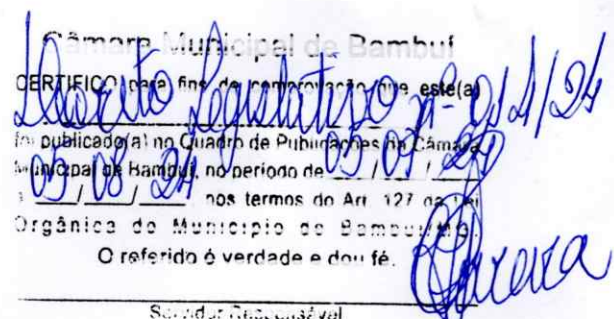 Câmara Municipal de Bambuí
CERTIFICO para fins de comprovação que este(a)
Decreto Legislativo nº
foi publicado(a) no Quadro de Publicações da Câmara
Municipal de Bambuí, no período de 05/07/24
a 05/08/24 nos termos do Art. 127 da Lei
Orgânica do Município de Bambuí/MG.
O referido é verdade e dou fé.
Servidor Responsável